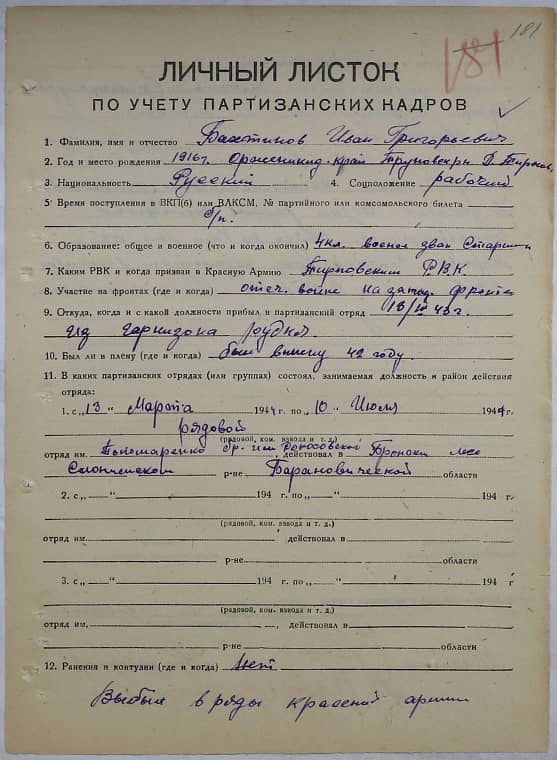 181
181
ЛИЧНЫЙ ЛИСТОК
ПО УЧЕТУ ПАРТИЗАНСКИХ КАДРОВ
1. Фамилия, имя и отчество Бахтинов Иван Григорьевич
2. Год и место рождения 1916 г. край Труновск. рн Д.
3. Национальность Русский 4. Соцположение рабочий
5. Время поступления в ВКП(б) или ВЛКСМ, № партийного или комсомольского билета
б/п.
6. Образование: общее и военное (что и когда окончил) 4 кл. военое зван Старшин
7. Каким РВК и когда призван в Красную Армию Р.В.К.
8. Участие на фронтах (где и когда) отеч. войне На запад. фронте
9. Откуда, когда и с какой должности прибыл в партизанский отряд 13/III 43 г.
из гарнизона
10. Был ли в плену (где и когда) был в плену 42 году.
11. В каких партизанских отрядах (или группах) состоял, занимаемая должность и район действия
отряда:
1. с „13“ Марта 1944 г. по „10“ Июля 1944 г.
рядовой
(рядовой, ком. взвода и т. д.)
отряд им. Пономаренко бр. им. действовал в лес
р-не Барановической области
2. с „ “ 194 г. по „ “ 194 г.
(рядовой, ком. взвода и т. д.)
отряд им. действовал в
р-не области
3. с „ “ 194 г. по „ “ 194 г
(рядовой, ком. взвода и т. д.)
отряд им. действовал в
р-не области
12. Ранения и контузии (где и когда) нет
Выбыл в ряды красной армии